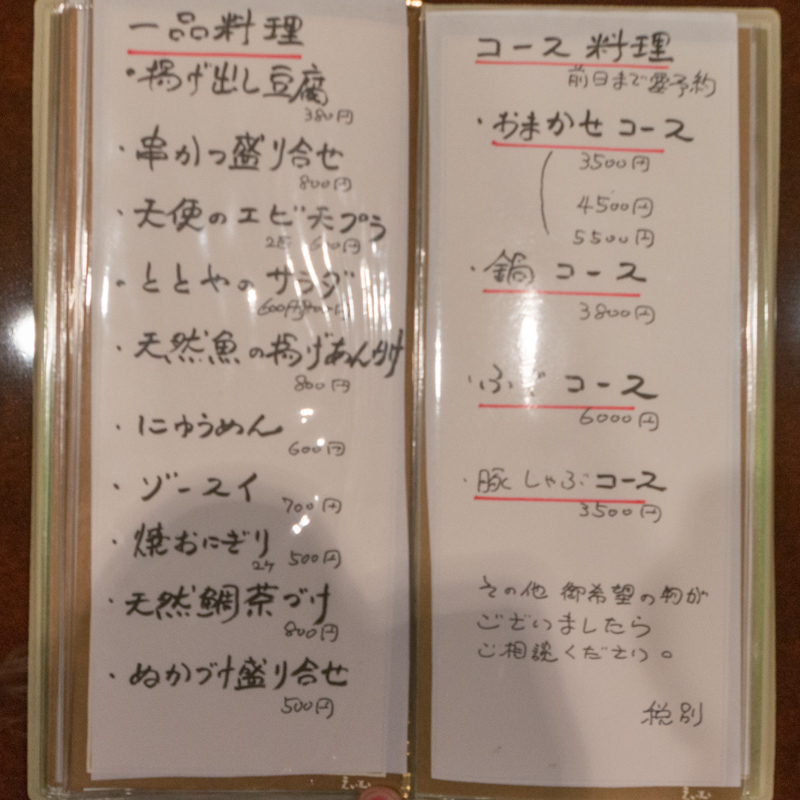 一品料理
・揚げ出し豆腐
380円
・串かつ盛り合せ
800円
・天使のエビ天プラ
600円
・ととやのサラダ
・天然魚の揚げあんかけ
800円
・にゅうめん
600円
・ゾースイ
700円
・焼おにぎり
2ケ 500円
・天然鯛茶づけ
800円
・ぬかづけ盛り合せ
500円
コース 料理
前日まで要予約
・おまかせコース
3500円
4500円
5500円
・鍋 コース
3800円
・ふぐ コース
6000円
・豚しゃぶコース
3500円
その他 御希望の物が
ございましたら
ご相談ください。
税別